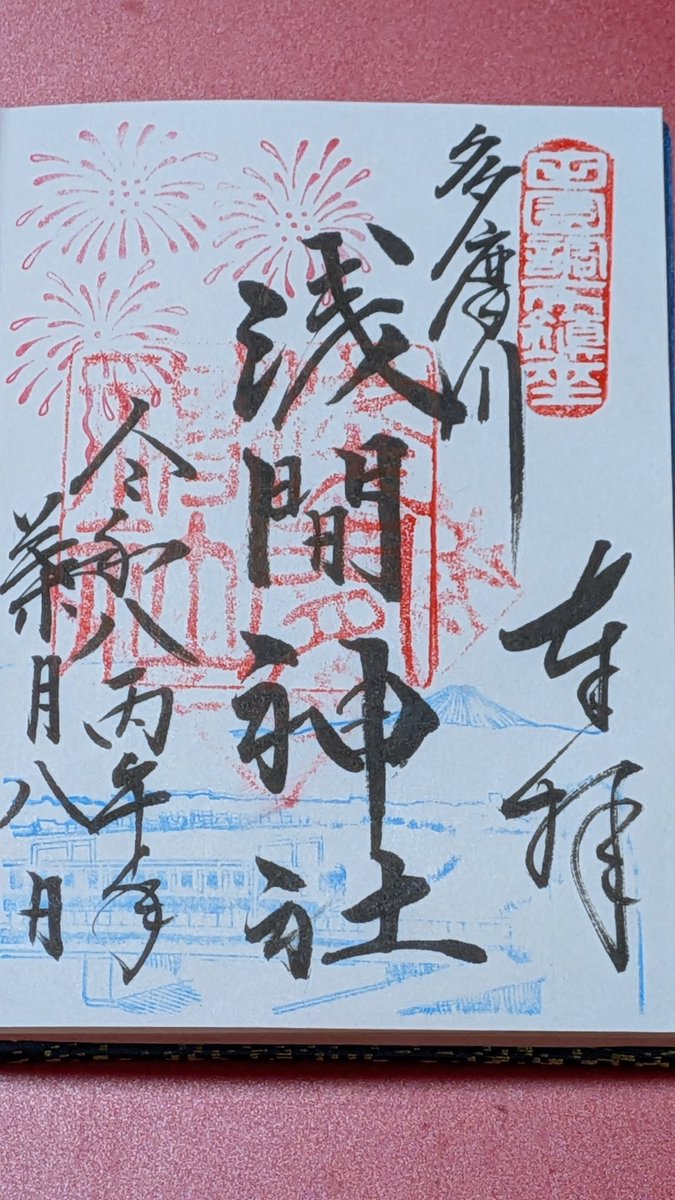 田園調布鎮座
奉拝
多摩川
浅間神社
令和八丙午年
葉月八日